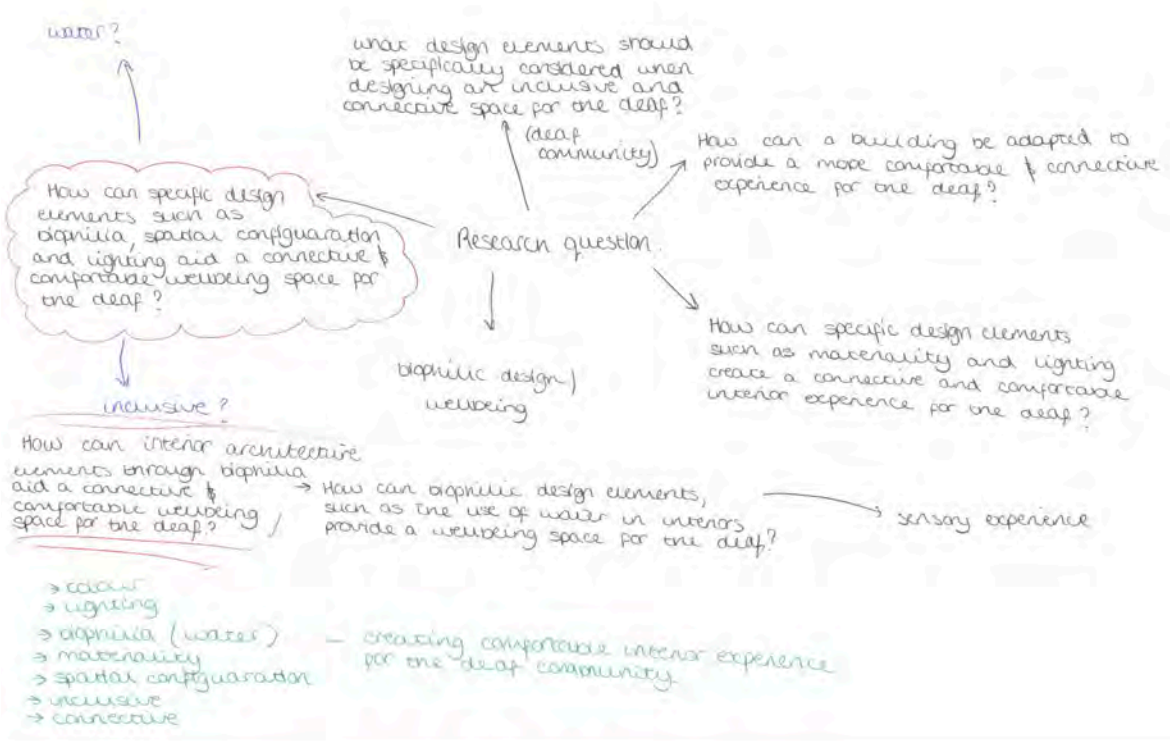 water?
what design elements should
be specifically considered when
designing an inclusive and
connective space for the deaf?
(deaf
community)
How can a building be adapted to
provide a more comfortable & connective
experience for the deaf?
How can specific design
elements such as
biophilia, spatial configuaration
and lighting aid a connective &
comfortable wellbeing space for
the deaf?
Research question.
How can specific design elements
such as materiality and lighting
create a connective and comfortable
interior experience for the deaf?
biophilic design /
wellbeing
inclusive?
How can interior architecture
elements through biophilia
aid a connective &
comfortable wellbeing
space for the deaf? /
→ How can biophilic design elements,
such as the use of water in interiors
provide a wellbeing space for the deaf?
sensory experience
→ colour
→ lighting
→ biophilia (water)
→ materiality
→ spatial configuaration
→ inclusive
→ connective
– creating comfortable interior experience
for the deaf community